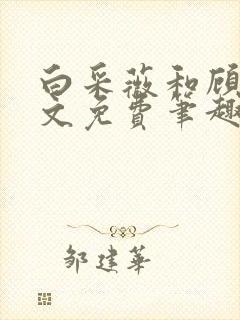 白采薇和顾
文免费笔趣
邹建华